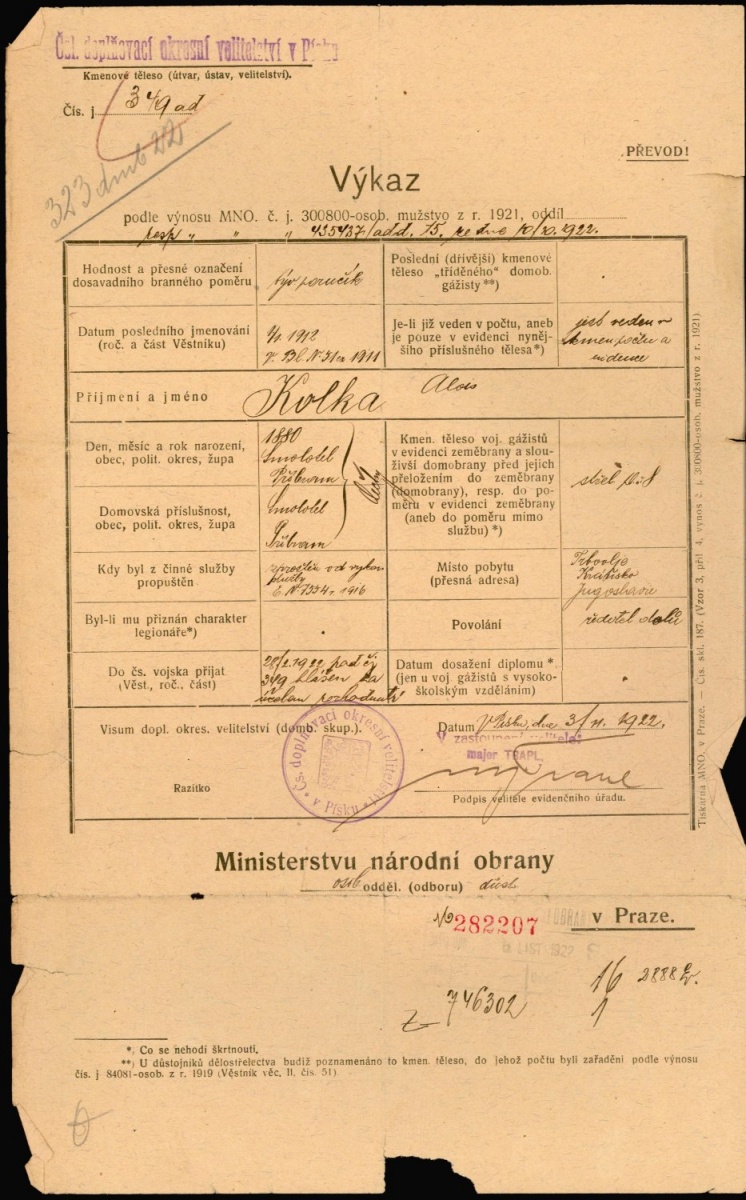 Čsl. doplňovací okresní velitelství v Písku
Kmenové těleso (útvar, ústav, velitelství).
Čís. j.
PŘEVOD!
Výkaz
podle výnosu MNO. č. j. 300800-osob. mužstvo z r. 1921, oddíl
resp. „ „ „ 435437/add. 15. ze dne 10/10. 1922.
Hodnost a přesné označení
dosavadního branného poměru
býv. poručík
Poslední (dřívější) kmenové
těleso „tříděného“ domob.
gážisty **)
Datum posledního jmenování
(roč. a část Věstníku)
1/1 1912
1911
Je-li již veden v počtu, aneb
je pouze v evidenci nyněj-
šího příslušného tělesa*)
jest veden v
kmen. počtu a
evidence
Příjmení a jméno
Kolka Alois
Den, měsíc a rok narození,
obec, polit. okres, župa
1880
Smolotel
Příbram
Čechy
Domovská příslušnost,
obec, polit. okres, župa
Smolotel
Příbram
Kmen. těleso voj. gážistů
v evidenci zeměbrany a slou-
živší domobrany před jejich
přeložením do zeměbrany
(domobrany), resp. do po-
měru v evidenci zeměbrany
(aneb do poměru mimo
službu) *)
Kdy byl z činné služby
propuštěn
1916
Místo pobytu
(přesná adresa)
Trbovlje
Jugoslavie
Byl-li mu přiznán charakter
legionáře*)
Povolání
ředitel dolů
Do čs. vojska přijat
(Věst., roč., část)
28/2. 1922 pod čj.
349 hlášen za
účelem rozhodnutí
Datum dosažení diplomu *)
(jen u voj. gážistů s vysoko-
školským vzděláním)
Visum dopl. okres. velitelství (domob. skup.).
Datum V Písku, dne 3/11. 1922.
V zastoupení velitele:
major TRAPL.
Razítko
Čs. doplňovací okresní velitelství v Písku
Podpis velitele evidenčního úřadu.
Tiskárna MNO. v Praze. — Čís. skl. 187. (Vzor 3, příl 4, výnos č. j. 300800-osob. mužstvo z r. 1921)
Ministerstvu národní obrany
osob. odděl. (odboru) důst.
No 282207
v Praze.
LIST 1922
746302
16 2888
1
*) Co se nehodí škrtnouti.
**) U důstojníků dělostřelectva budiž poznamenáno to kmen. těleso, do jehož počtu byli zařaděni podle výnosu
čís. j 84081-osob. z r. 1919 (Věstník věc. II. čís. 51)